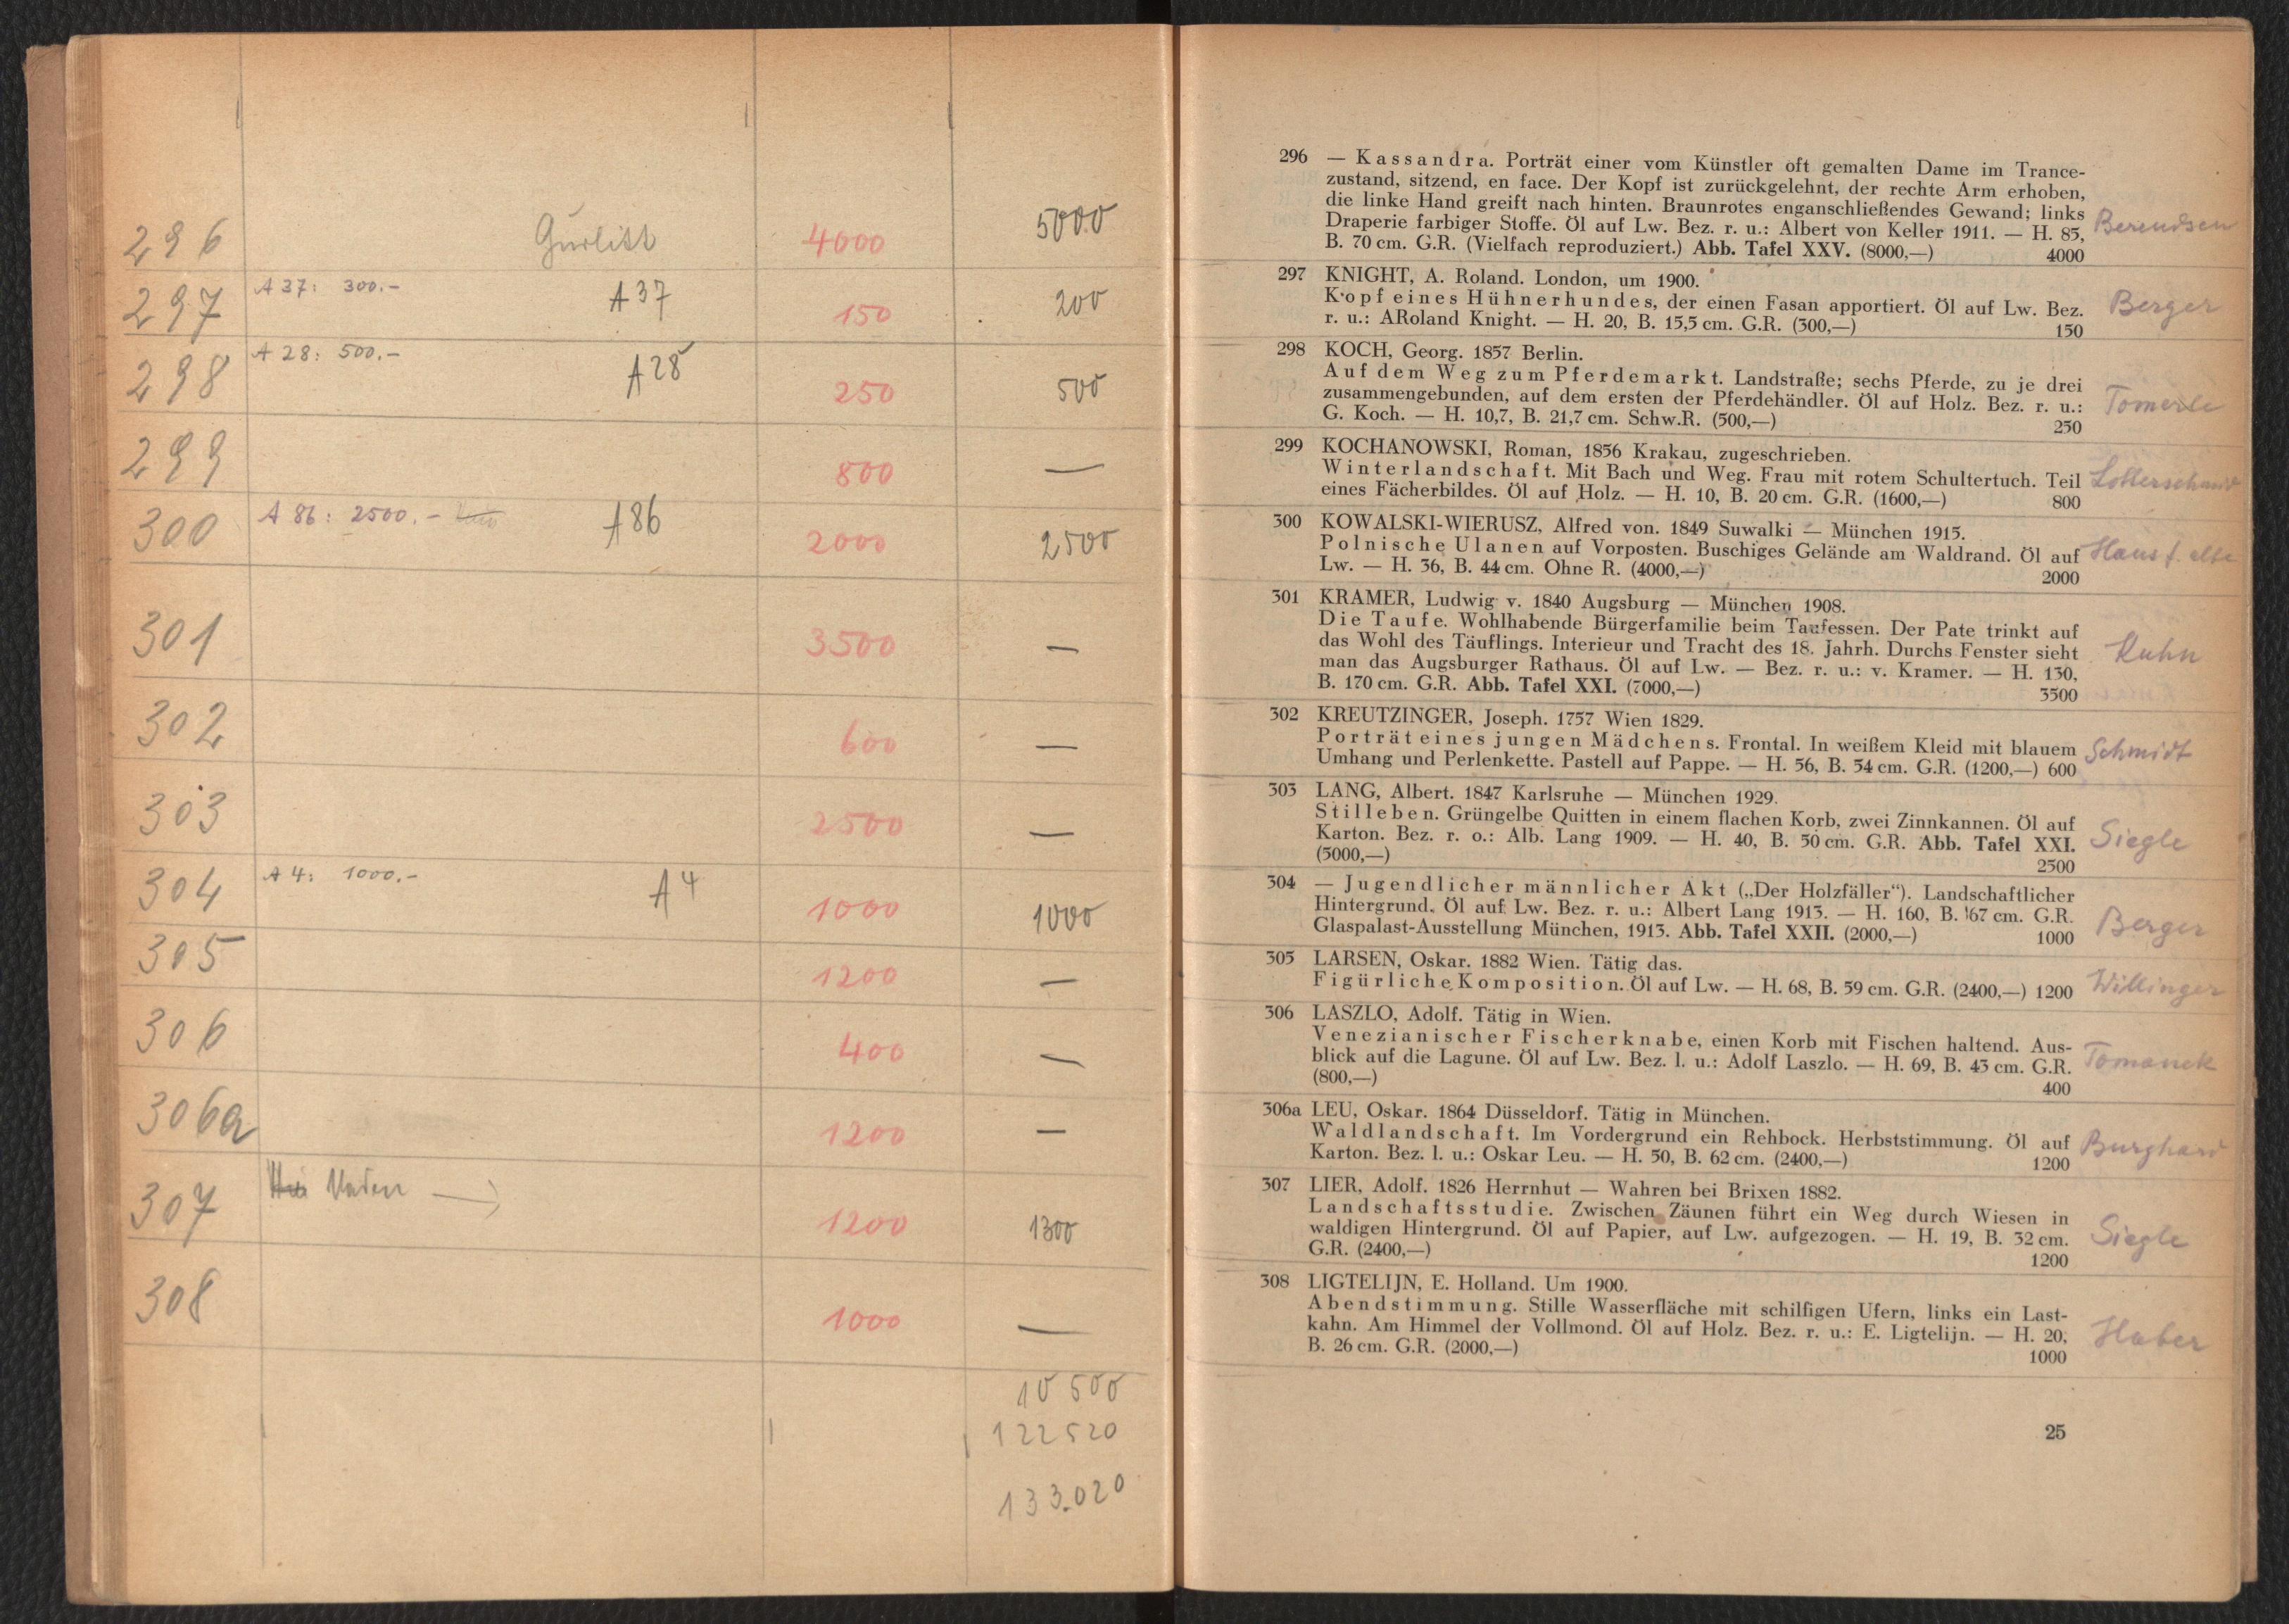 296 Gurlitt 4000 5000
A 37: 300.-
297 A37 150 200
A 28: 500.-
298 A28 250 500
299 800 —
A 86: 2500.-
300 A86 2000 2500
301 3500 —
302 600 —
303 2500 —
A 4: 1000.-
304 A4 1000 1000
305 1200 —
306 400 —
306a 1200 —
307 1200 1300
308 1000 —
10 500
122 520
133.020
296 — Kassandra. Porträt einer vom Künstler oft gemalten Dame im Trance-
zustand, sitzend, en face. Der Kopf ist zurückgelehnt, der rechte Arm erhoben,
die linke Hand greift nach hinten. Braunrotes enganschließendes Gewand; links
Draperie farbiger Stoffe. Öl auf Lw. Bez. r. u.: Albert von Keller 1911. — H. 85, Berendsen
B. 70 cm. G.R. (Vielfach reproduziert.) Abb. Tafel XXV. (8000,—) 4000
297 KNIGHT, A. Roland. London, um 1900.
Kopf eines Hühnerhundes, der einen Fasan apportiert. Öl auf Lw. Bez. Berger
r. u.: ARoland Knight. — H. 20, B. 15,5 cm. G.R. (300,—) 150
298 KOCH, Georg. 1857 Berlin.
Auf dem Weg zum Pferdemarkt. Landstraße; sechs Pferde, zu je drei
zusammengebunden, auf dem ersten der Pferdehändler. Öl auf Holz. Bez. r. u.: Tomerle
G. Koch. — H. 10,7, B. 21,7 cm. Schw.R. (500,—) 250
299 KOCHANOWSKI, Roman, 1856 Krakau, zugeschrieben.
Winterlandschaft. Mit Bach und Weg. Frau mit rotem Schultertuch. Teil
eines Fächerbildes. Öl auf Holz. — H. 10, B. 20 cm. G.R. (1600,—) 800
300 KOWALSKI-WIERUSZ, Alfred von. 1849 Suwalki — München 1915.
Polnische Ulanen auf Vorposten. Buschiges Gelände am Waldrand. Öl auf Haus f. alte
Lw. — H. 36, B. 44 cm. Ohne R. (4000,—) 2000
301 KRAMER, Ludwig v. 1840 Augsburg — München 1908.
Die Taufe. Wohlhabende Bürgerfamilie beim Taufessen. Der Pate trinkt auf
das Wohl des Täuflings. Interieur und Tracht des 18. Jahrh. Durchs Fenster sieht Kuhn
man das Augsburger Rathaus. Öl auf Lw. — Bez. r. u.: v. Kramer. — H. 130,
B. 170 cm. G.R. Abb. Tafel XXI. (7000,—) 3500
302 KREUTZINGER, Joseph. 1757 Wien 1829.
Porträt eines jungen Mädchens. Frontal. In weißem Kleid mit blauem Schmidt
Umhang und Perlenkette. Pastell auf Pappe. — H. 56, B. 34 cm. G.R. (1200,—) 600
303 LANG, Albert. 1847 Karlsruhe — München 1929.
Stilleben. Grüngelbe Quitten in einem flachen Korb, zwei Zinnkannen. Öl auf
Karton. Bez. r. o.: Alb. Lang 1909. — H. 40, B. 50 cm. G.R. Abb. Tafel XXI. Siegle
(5000,—) 2500
304 — Jugendlicher männlicher Akt („Der Holzfäller“). Landschaftlicher
Hintergrund. Öl auf Lw. Bez. r. u.: Albert Lang 1913. — H. 160, B. 67 cm. G.R. Berger
Glaspalast-Ausstellung München, 1913. Abb. Tafel XXII. (2000,—) 1000
305 LARSEN, Oskar. 1882 Wien. Tätig das.
Figürliche Komposition. Öl auf Lw. — H. 68, B. 59 cm. G.R. (2400,—) 1200 Willinger
306 LASZLO, Adolf. Tätig in Wien.
Venezianischer Fischerknabe, einen Korb mit Fischen haltend. Aus-
blick auf die Lagune. Öl auf Lw. Bez. l. u.: Adolf Laszlo. — H. 69, B. 43 cm. G.R. Tomanek
(800,—) 400
306a LEU, Oskar. 1864 Düsseldorf. Tätig in München.
Waldlandschaft. Im Vordergrund ein Rehbock. Herbststimmung. Öl auf Burghard
Karton. Bez. l. u.: Oskar Leu. — H. 50, B. 62 cm. (2400,—) 1200
307 LIER, Adolf. 1826 Herrnhut — Wahren bei Brixen 1882.
Landschaftsstudie. Zwischen Zäunen führt ein Weg durch Wiesen in
waldigen Hintergrund. Öl auf Papier, auf Lw. aufgezogen. — H. 19, B. 32 cm. Siegle
G.R. (2400,—) 1200
308 LIGTELIJN, E. Holland. Um 1900.
Abendstimmung. Stille Wasserfläche mit schilfigen Ufern, links ein Last-
kahn. Am Himmel der Vollmond. Öl auf Holz. Bez. r. u.: E. Ligtelijn. — H. 20, Haber
B. 26 cm. G.R. (2000,—) 1000
25